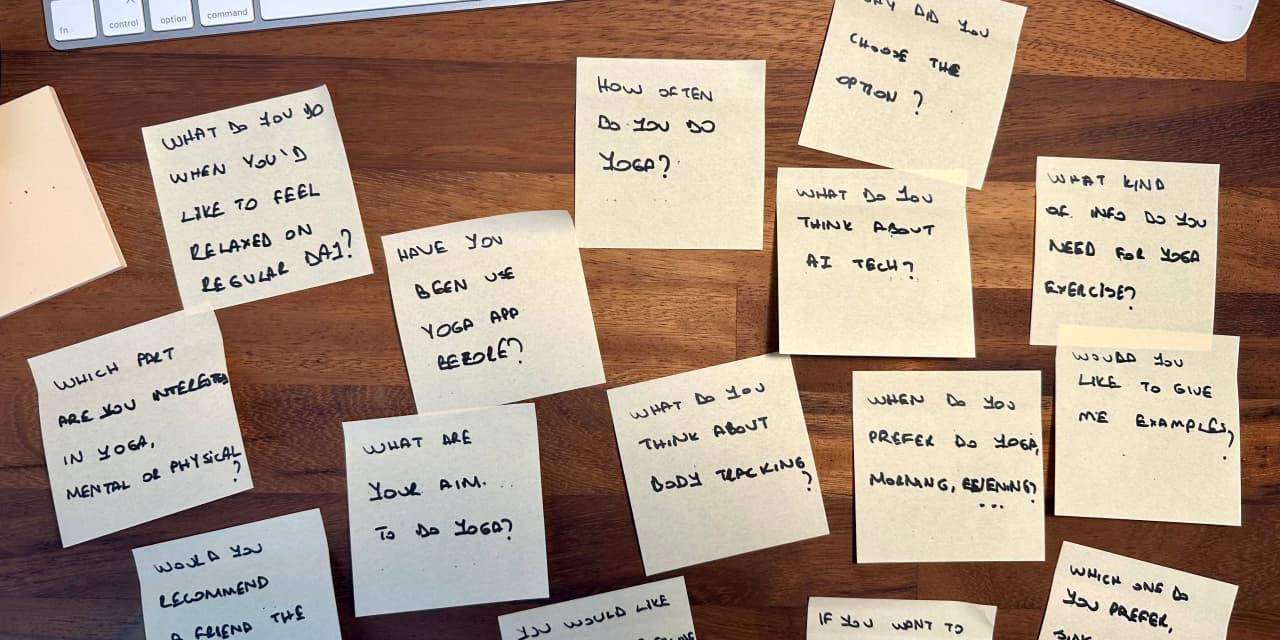 fn
control
option
command
WHAT DO YOU DO
WHEN YOU'D
LIKE TO FEEL
RELAXED ON
REGULAR DAY?
HOW OFTEN
DO YOU DO
YOGA?
DID YOU
CHOOSE THE
OPTION?
HAVE YOU
BEEN USE
YOGA APP
BEFORE?
WHAT DO YOU
THINK ABOUT
AI TECH?
WHAT KIND
OF INFO DO YOU
NEED FOR YOGA
EXERCISE?
WHICH PART
ARE YOU INTERESTED
IN YOGA,
MENTAL OR PHYSICAL
?
WHAT ARE
YOUR AIM.
TO DO YOGA?
WHAT DO YOU
THINK ABOUT
BODY TRACKING
?
WHEN DO YOU
PREFER DO YOGA,
MORNING, EVENING?
...
WOULD YOU
LIKE TO GIVE
ME EXAMPLES,
?
WOULD YOU
RECOMMEND
A FRIEND THE
YOU WOULD LIKE
IF YOU WANT TO
WHICH ONE DO
YOU PREFER,